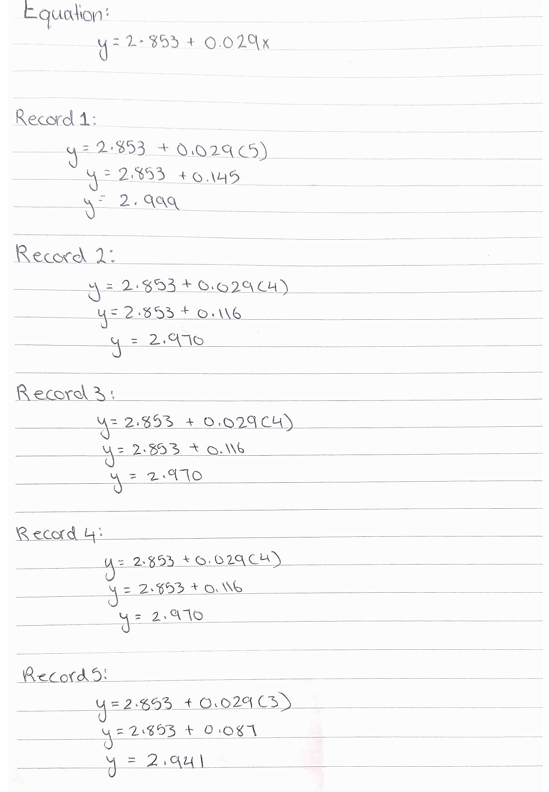 Equation:
y = 2.853 + 0.029x
Record 1:
y = 2.853 + 0.029(5)
y = 2.853 + 0.145
y = 2.999
Record 2:
y = 2.853 + 0.029(4)
y = 2.853 + 0.116
y = 2.970
Record 3:
y = 2.853 + 0.029(4)
y = 2.853 + 0.116
y = 2.970
Record 4:
y = 2.853 + 0.029(4)
y = 2.853 + 0.116
y = 2.970
Record 5:
y = 2.853 + 0.029(3)
y = 2.853 + 0.087
y = 2.941